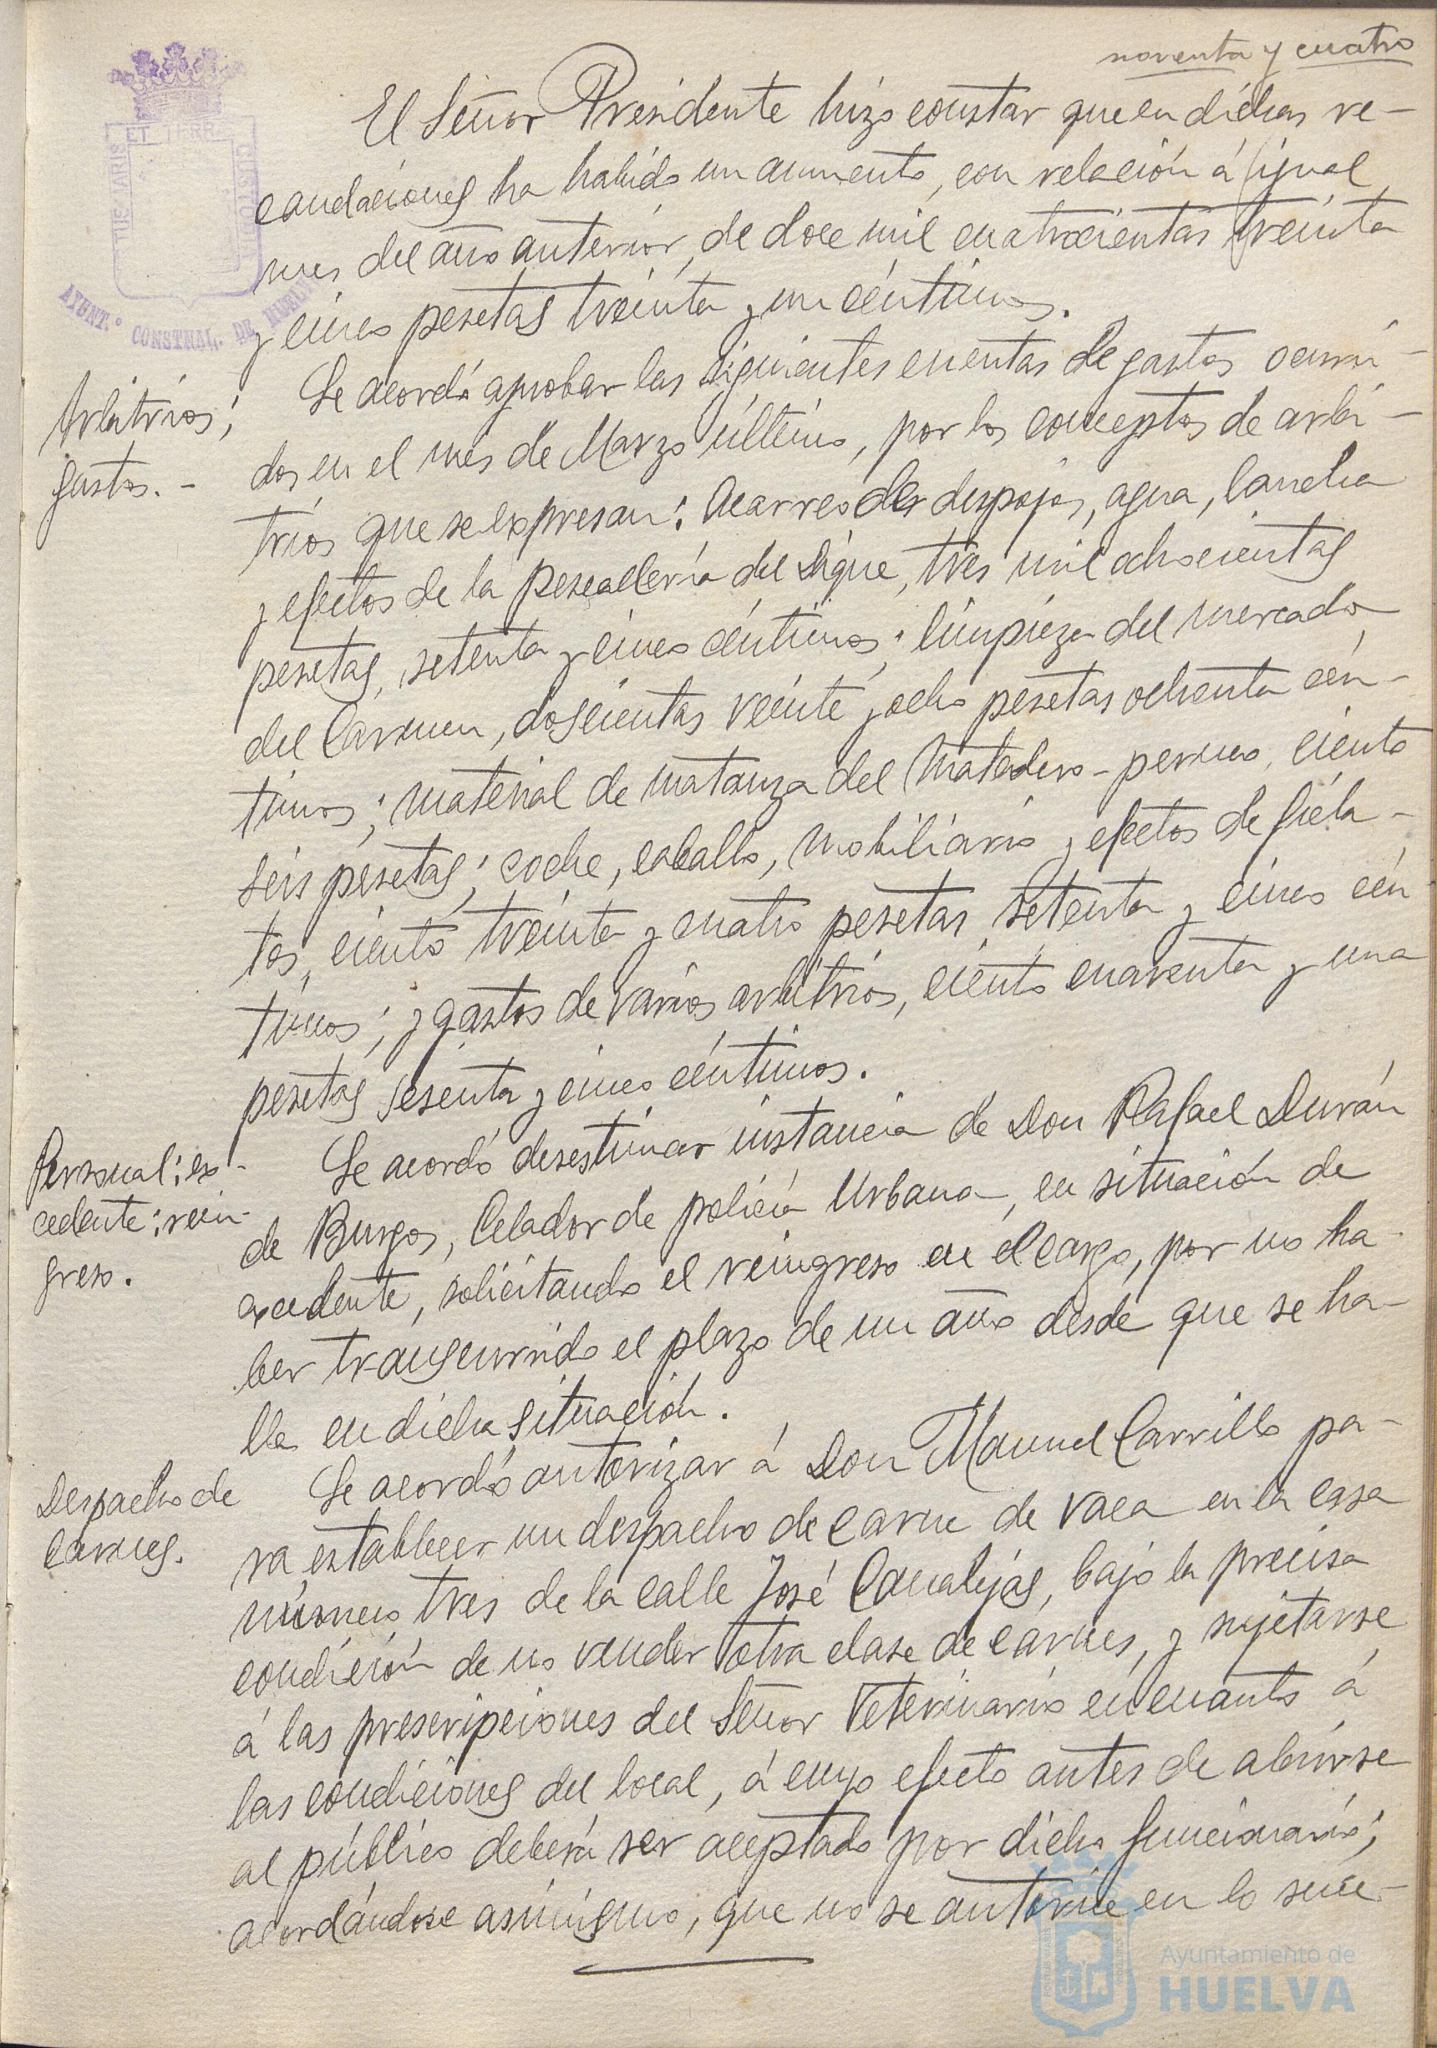 noventa y cuatro
El Señor Presidente hizo constar que en dichas re-
caudaciones ha habido un aumento, con relación á igual
mes del año anterior, de doce mil cuatrocientas treinta
y cinco pesetas treinta y un céntimos.
PORTUS MARIS ET TERRE CUSTODIA
AYUNT.º CONSTNAL. DE HUELVA
Arbitrios;
gastos.-
Se acordó aprobar las siguientes cuentas de gastos ocurri-
dos en el mes de Marzo último, por los conceptos de arbi-
trios que se expresan: Acarreo de despojos, agua, lancha
y efectos de la pescadería del Dique, tres mil ochocientas
pesetas, setenta y cinco céntimos; limpieza del mercado
del Carmen, doscientas veinte y ocho pesetas ochenta cén-
timos; material de matanza del Matadero-permo, ciento
seis pesetas; coche, caballo, mobiliario y efectos de fiela-
tos, ciento treinta y cuatro pesetas setenta y cinco cén-
timos; y gastos de varios arbitrios, ciento cuarenta y una
pesetas sesenta y cinco céntimos.
Personal; ex-
cedente; rein-
greso.
Se acordó desestimar instancia de Don Rafael Durán
de Burgos, Celador de policía Urbana, en situación de
excedente, solicitando el reingreso en el cargo, por no ha-
ber transcurrido el plazo de un año desde que se ha-
lla en dicha situación.
Despacho de
carnes.
Se acordó autorizar á Don Manuel Carrillo pa-
ra establecer un despacho de carne de vaca en la casa
número tres de la calle José Canalejas, bajo la precisa
condición de no vender otra clase de carnes, y sujetarse
á las prescripciones del Señor Veterinario en cuanto á
las condiciones del local, á cuyo efecto antes de abrirse
al público deberá ser aceptado por dicho funcionario;
acordándose asimismo, que no se autorice en lo suce-
Ayuntamiento de
HUELVA